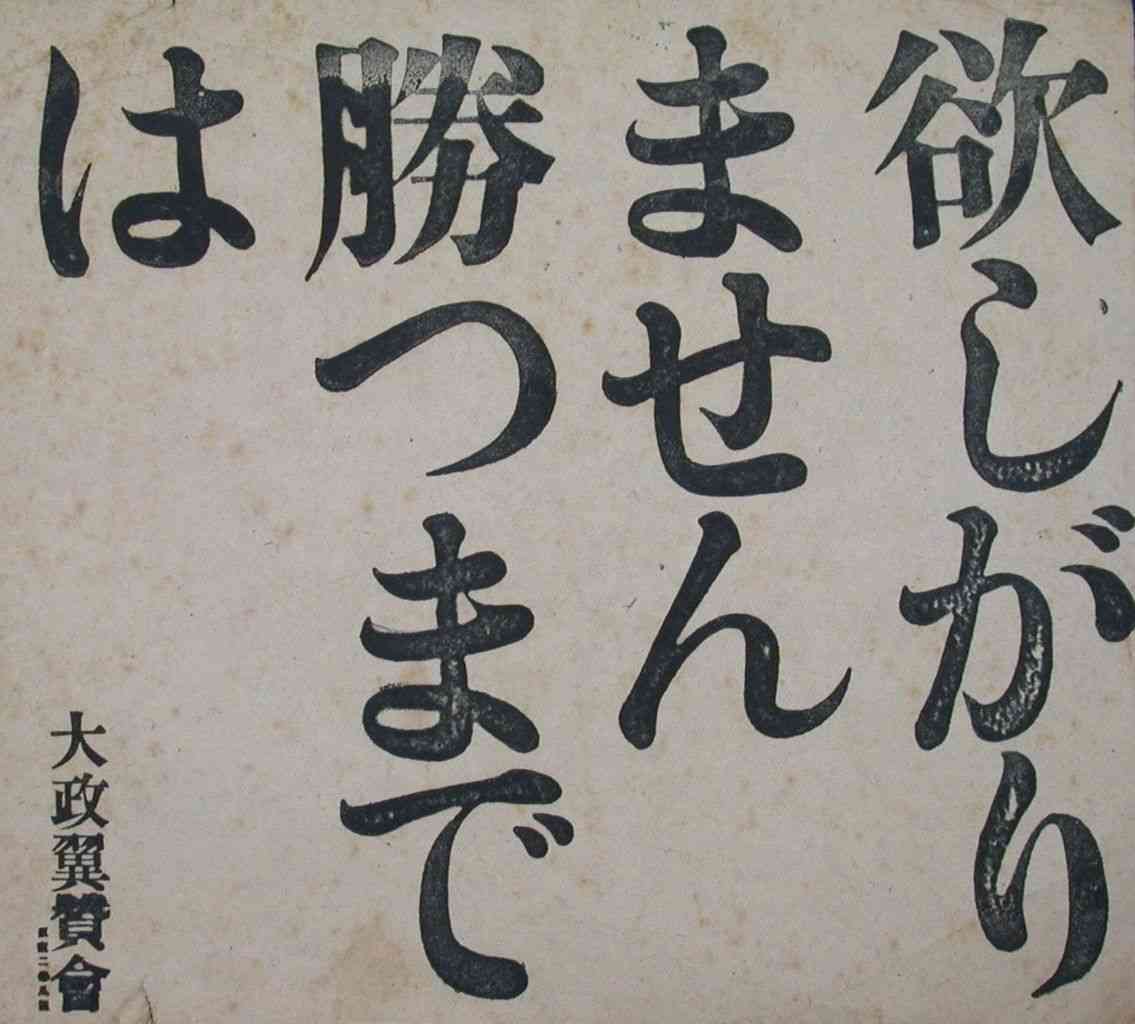 欲しがり
ません
勝つまで
は
大政翼賛会